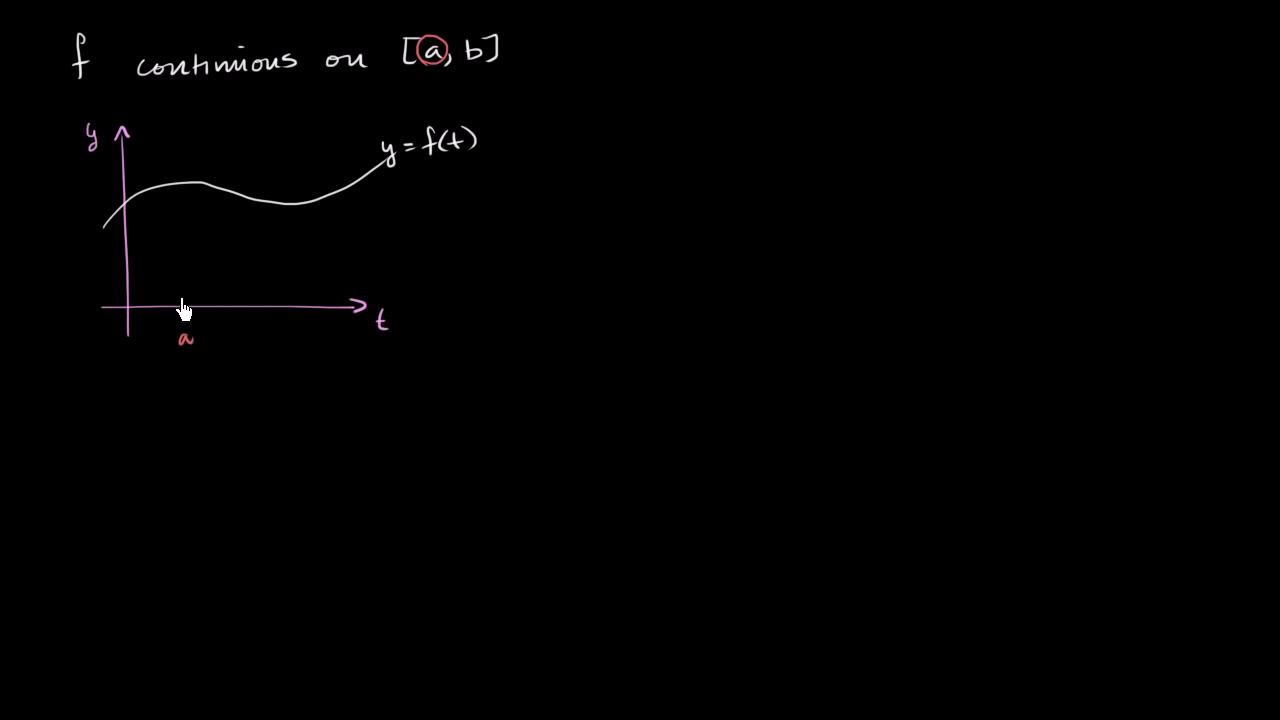 f continuous on [a, b]
y
y = f(t)
t
a